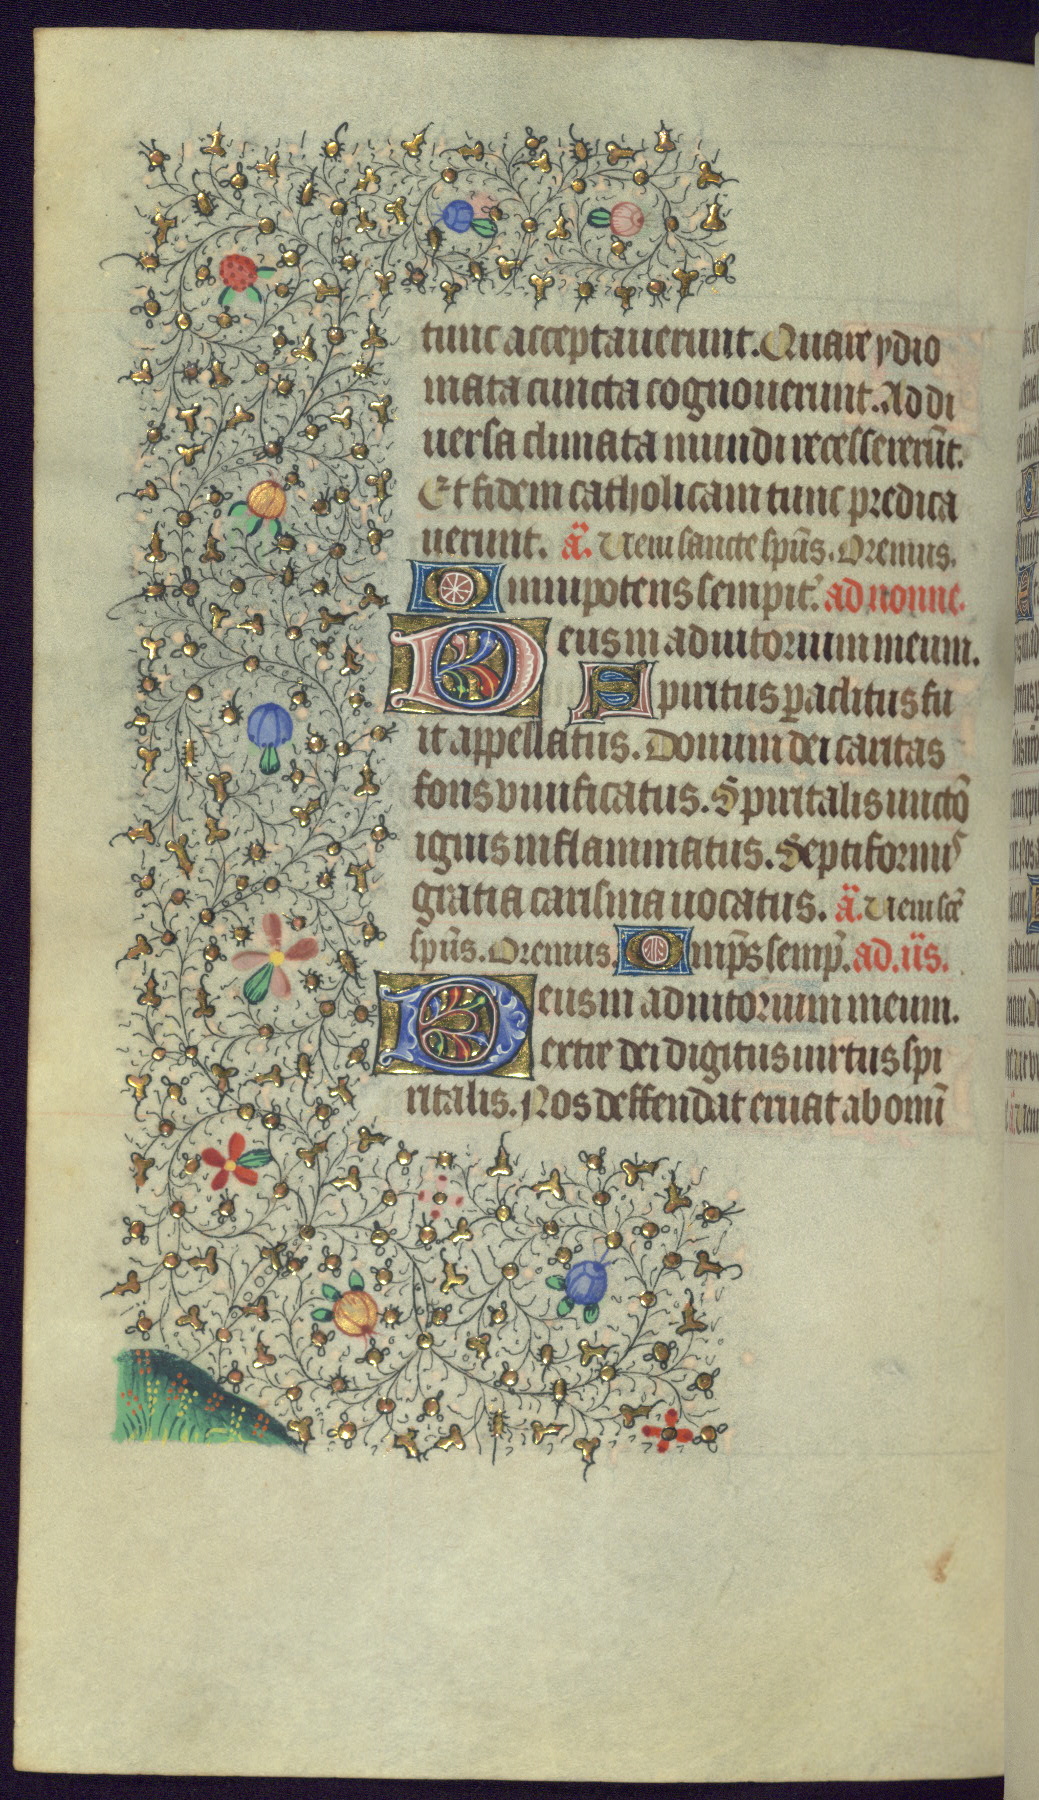 tunc acceptauerunt. Quare ydio
mata cuncta cognouerunt. Ad di
uersa climata mundi recesserũt.
Et fidem catholicam tunc predica
uerunt. a͂. Ueni sancte sp̃us. Oremus.
Omnipotens sempit̾. ad nonne.
Deus in adiutorium meum.
Spiritus ꝑaclitus fu
it appellatus. Donum dei caritas
fons viuificatus. Spiritalis unctõ
ignis inflammatus. Septiformis
gratia carisma uocatus. a͂. Ueni sc̃e
sp̃us. Oremus. Omp̃s semp̃. ad. us̃.
Deus in adiutorium meum.
Dextre dei digitus uirtus spi
ritalis. Nos deffendat eruat ab omĩ